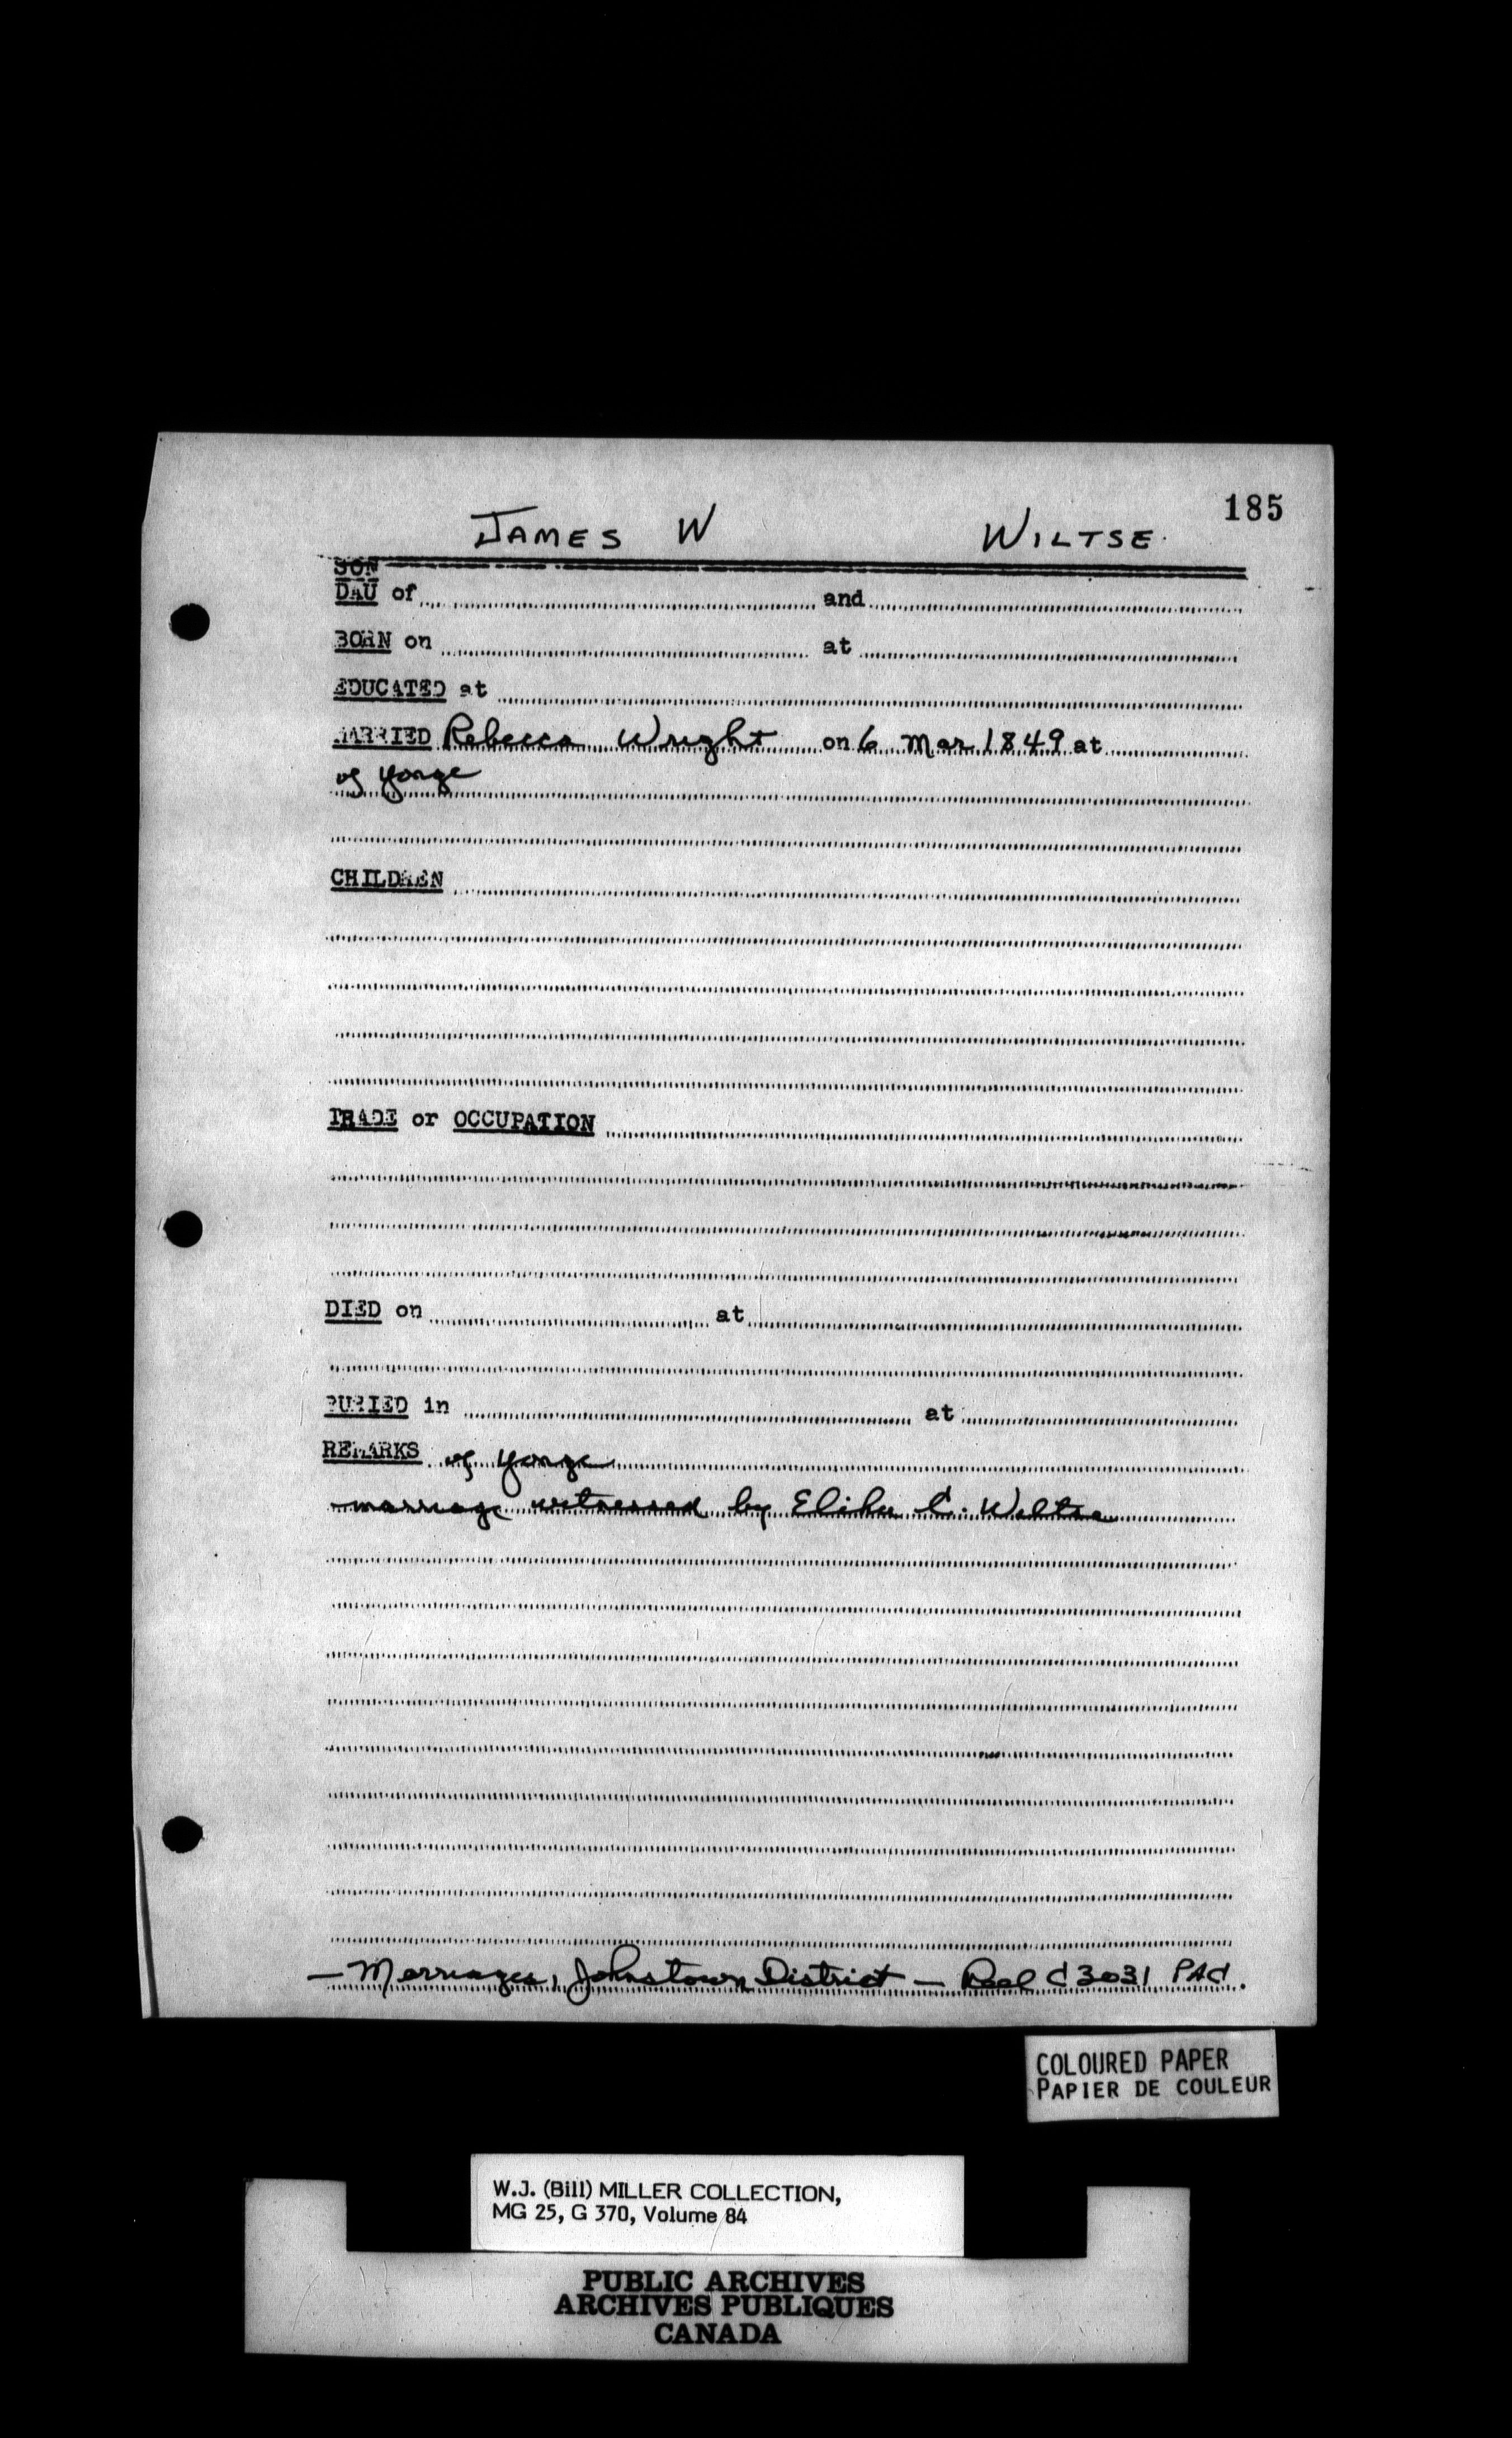 185
JAMES W WILTSE
SON
DAU of and
BORN on at
EDUCATED at
MARRIED Rebecca Wright on 6 Mar 1849 at
of Yonge
CHILDREN
TRADE or OCCUPATION
DIED on at
BURIED in at
REMARKS of Yonge
marriage witnessed by Elihu C. Wiltse
— Marriages, Johnstown District — Reel C3031 PAC.
COLOURED PAPER
PAPIER DE COULEUR
W.J. (Bill) MILLER COLLECTION,
MG 25, G 370, Volume 84
PUBLIC ARCHIVES
ARCHIVES PUBLIQUES
CANADA